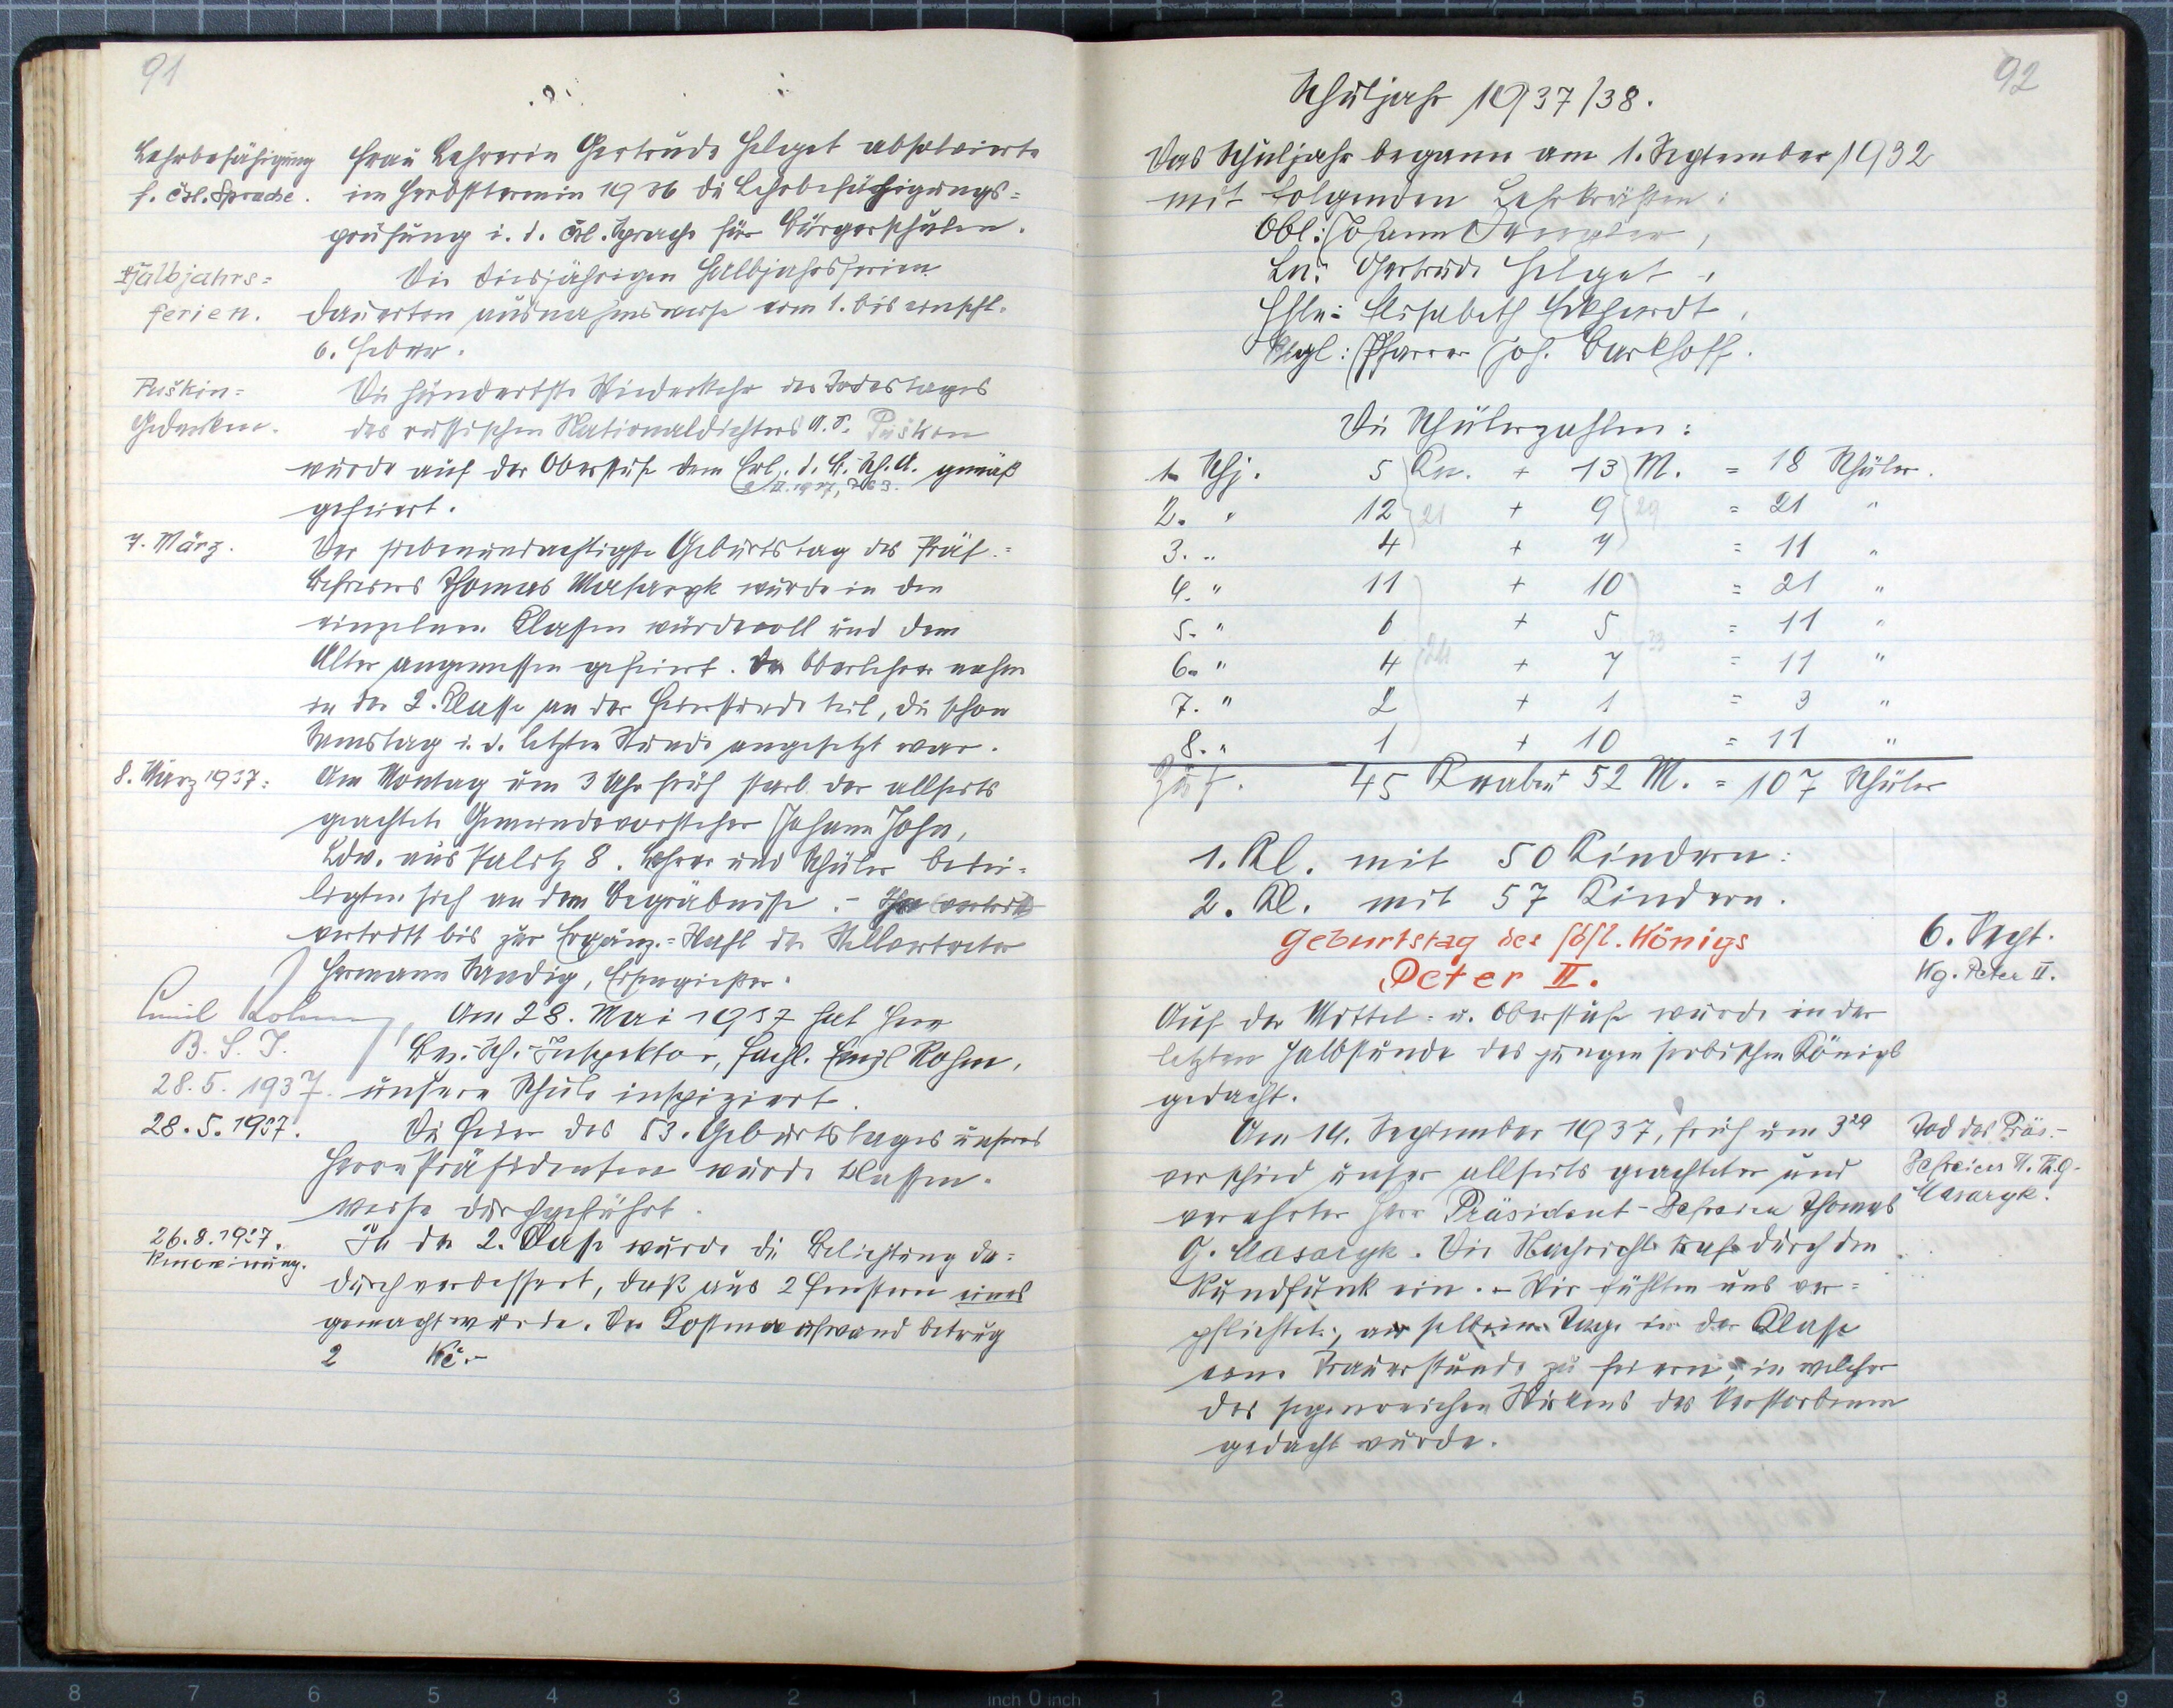 91
Lehrbefähigung
f. čsl. Sprache.
Frau Lehrerin Gertrude Heleget absolvierte
im Herbsttermin 1936 die Lehrbefähigungs=
prüfung i. d. čsl. Sprache für Bürgerschulen.
Halbjahrs=
ferien.
Die diesjährigen Halbjahrsferien
dauerten ausnahmsweise vom 1. bis einschl.
6. Feber.
Puškin=
Gedenken.
Die hundertste Wiederkehr des Todestages
des russischen Nationaldichters A. S. Puškin
wurde auf der Oberstufe dem Erl. d. B. Sch. A. gemäß
gefeiert.
7. März.
Der siebenundachtigste Geburtstag des Präs.=
Befreiers Thomas Masaryk wurde in den
einzelnen Klassen würdevoll und dem
Alter angemessen gefeiert. Der Oberlehrer nahm
in der 2. Klasse an der Feierstunde teil, die schon
Samstag i. d. letzten Stunde angesetzt war.
8. März 1937:
Am Montag um 3 Uhr früh starb der allseits
geachtete Gemeindevorsteher Johann John,
Ldw. aus Palitz 8. Lehrer und Schüler betei=
ligten sich an dem Begräbnisse. –
vertritt bis zur Ergänz.=Wahl der Stellvertreter
Hermann Sandig, Eisengießer.
Emil Rohm
B. S. I.
28. 5. 1937.
Am 28. Mai 1937 hat Herr
Bez.-Sch.-Inspektor, Fachl. Emil Rohm,
unsere Schule inspiziert.
28. 5. 1937.
Die Feier des 53. Geburtstages unseres
Herrn Präsidenten wurde klassen=
weise durchgeführt.
26. 8. 1937.
Renovierung.
In der 2. Klasse wurde die Belichtung da=
durch verbessert, daß aus 2 Fenstern eines
gemacht wurde. Der Kostenaufwand betrug
2 Kč.–
92
Schuljahr 1937/38.
Das Schuljahr begann am 1. September 1932
mit folgenden Lehrkräften:
Obl.: Johann
Ln.: Gertrude Heleget,
Hsln: Elisabeth Eckhardt,
Rlgl: Pfarrer Joh. Burkhoff.
Die Schülerzahlen:
1. Schj. 5 Kn. + 13 M. = 18 Schüler.
2. " 12 21 + 9 29 = 21 "
3. " 4 + 7 = 11 "
4. " 11 + 10 = 21 "
5. " 6 + 5 = 11 "
6. " 4 24 + 7 33 = 11 "
7. " 2 + 1 = 3 "
8. " 1 + 10 = 11 "
Zus. 45 Knaben + 52 M. = 107 Schüler
1. Kl. mit 50 Kindern:
2. Kl. mit 57 Kindern.
Geburtstag des südsl. Königs
Peter II.
6. Sept.
Kg. Peter II.
Auf der Mittel= u. Oberstufe wurde in der
letzten Halbstunde des jungen serbischen Königs
gedacht.
Am 14. September 1937, früh um 3 29
verschied unser allseits geachteter und
verehrter Herr Präsident-Befreier Thomas
G. Masaryk. Die Nachricht traf durch den
Rundfunk ein. – Wir fühlten uns ver=
pflichtet, am selben Tage in der Klasse
eine Trauerstunde zu feiern, in welcher
des segensreichen Wirkens des Verstorbenen
gedacht wurde.
Tod des Präs.-
Befreiers H. Th. G.
Masaryk.